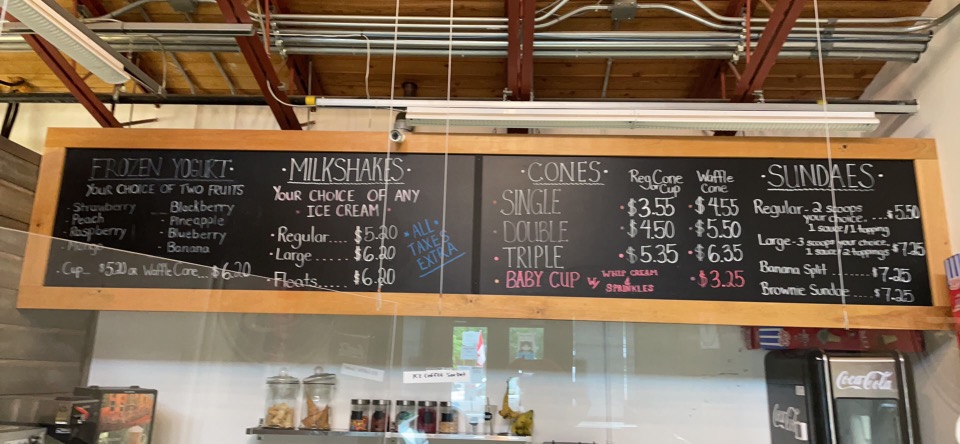 FROZEN YOGURT
YOUR CHOICE OF TWO FRUITS
Strawberry
Peach
Raspberry
Mango
Blackberry
Pineapple
Blueberry
Banana
Cup... $5.20 or Waffle Cone... $6.20
MILKSHAKES
YOUR CHOICE OF ANY
ICE CREAM
Regular.... $5.20
Large...... $6.20
Floats..... $6.20
ALL
TAXES
EXTRA
CONES
Reg Cone or Cup
Waffle Cone
SINGLE $3.55 $4.55
DOUBLE $4.50 $5.50
TRIPLE $5.35 $6.35
BABY CUP W/ WHIP CREAM & SPRINKLES $3.25
SUNDAES
Regular - 2 scoops
your choice
1 sauce/1 topping ... $5.50
Large - 3 scoops your choice,
1 sauce 2 toppings $7.25
Banana Split ...... $7.25
Brownie Sundae ..... $7.25
Coca-Cola
Coca-Cola